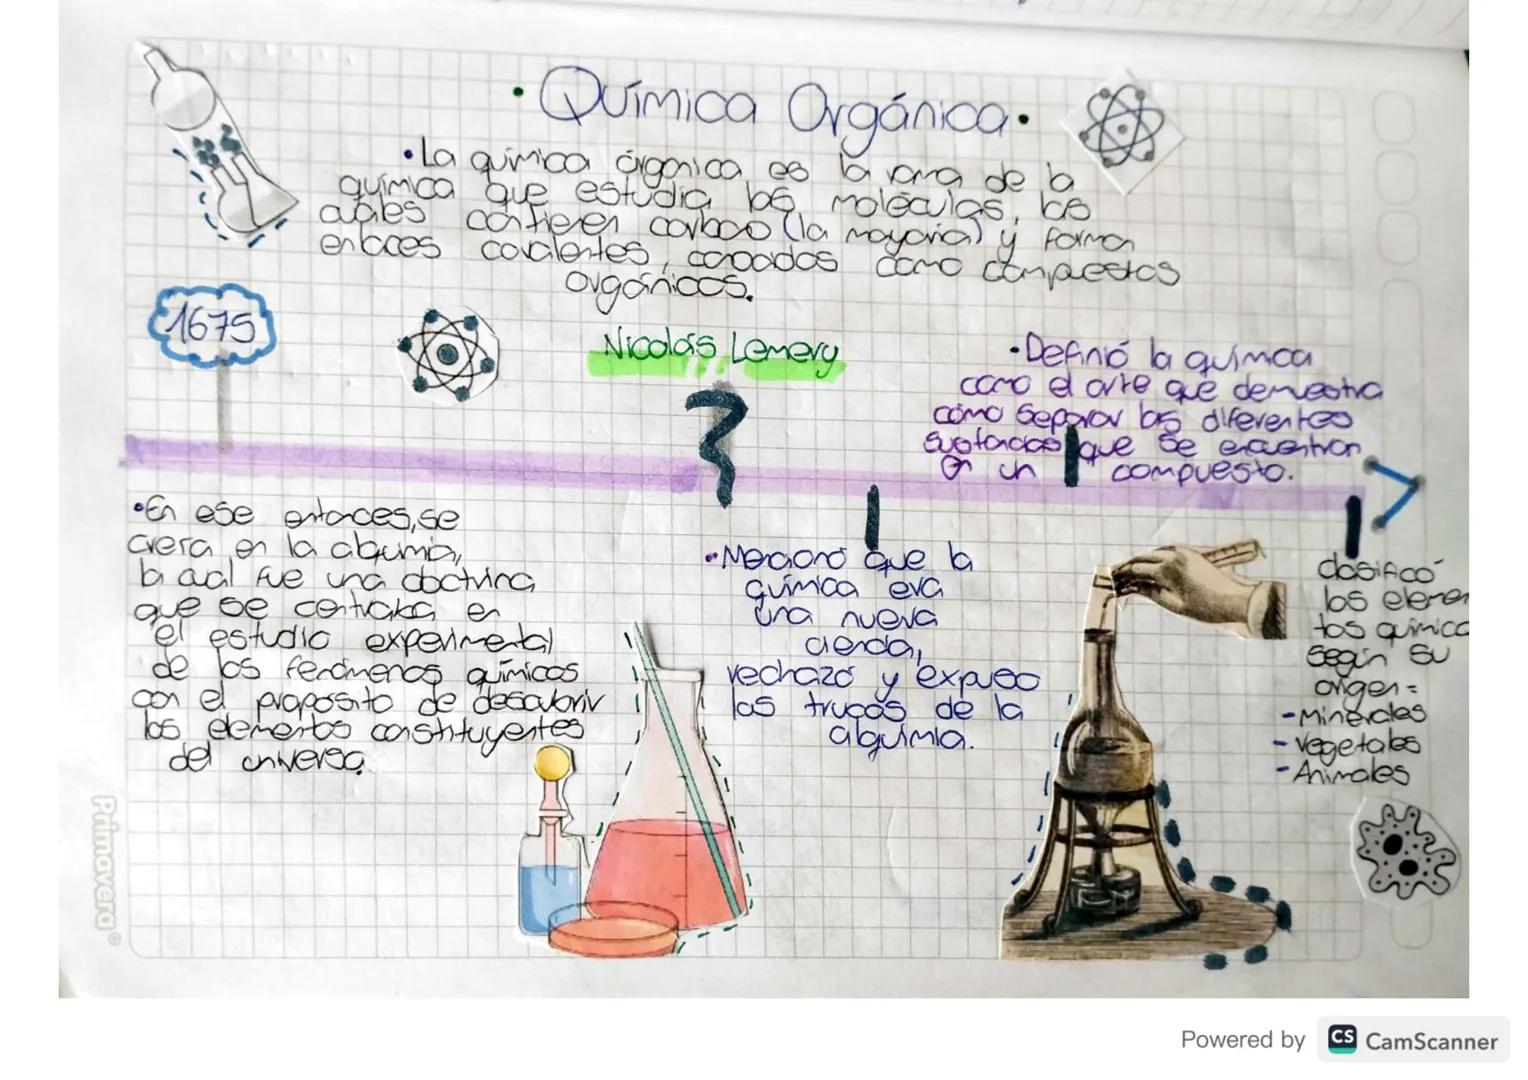 • Química Orgánica •
• La química órganica es la rama de la
química que estudia las moléculas, las
cuales contienen carbono (la mayoria) y forma
enlaces covalentes, conocidos como compuestos
orgánicos.
1675
Nicolás Lemery
• Definió la química
como el arte que demuestra
cómo separar las diferentes
sustancias que se encuentran
en un compuesto.
• En ese entonces, se
creia en la alquimia,
la cual fue una doctrina
que se centraba en
el estudio experimental
de los fenómenos químicos
con el proposito de descubrir
los elementos constituyentes
del universo.
• Mencionó que la
química era
una nueva
ciencia,
rechazó y expuso
las trucos de la
alquimia.
clasificó
los elemen
tos quimico
según su
origen:
- Minerales
- Vegetales
- Animales
Primavera®
Powered by CS CamScanner